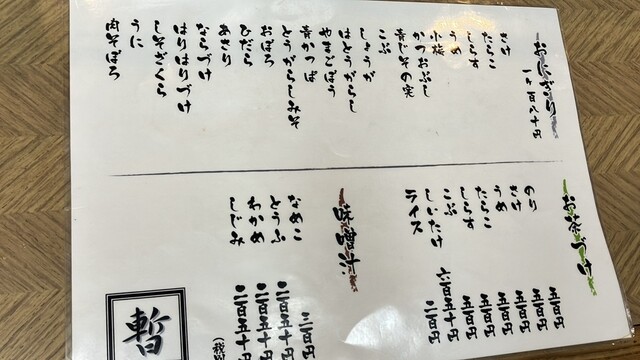 おにぎり
一ヶ百八十円
さけ
たらこ
しらす
うめ
小梅
かつおぶし
青じその実
こぶ
しょうが
はとうがらし
やまごぼう
青かっぱ
とうがらしみそ
おぼろ
ひだら
あさり
ならづけ
はりはりづけ
しそざくら
うに
肉そぼろ
お茶づけ
のり 五百円
さけ 五百円
うめ 五百円
たらこ 五百円
しらす 五百円
こぶ 五百円
しいたけ 六百五十円
ライス 二百円
味噌汁
なめこ 三百円
とうふ 二百五十円
わかめ 二百五十円
しじみ 二百五十円
暫